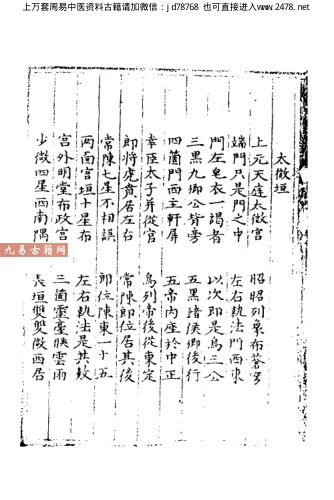 上万套周易中医资料古籍请加微信：jd78768 也可直接进入www.2478.net
太微垣
上元天庭太微宮 昭昭列象布蒼穹
端門只是門之中 左右執法門西東
門左皂衣一謁者 以次即是烏三公
三黑九卿公背旁 五黑諸侯卿後行
四箇門西主軒屏 五帝內座於中正
幸臣太子并從官 烏列帝後從東定
郎將虎賁居左右 常陳郎位居其後
常陳七星不相誤 郎位陳東一十五
兩面宮垣十星布 左右執法是其數
宮外明堂布政宮 三箇靈臺候雲雨
少微四星西南隅 長垣雙雙微西居
九易古籍网